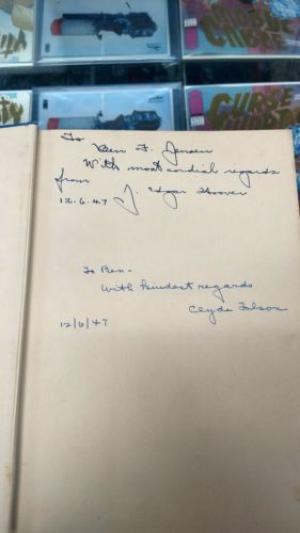 To
Ben F. Jensen
With most cordial regards
from
J. Edgar Hoover
12.6.47
To Ben-
With kindest regards
Clyde Tolson
12/6/47